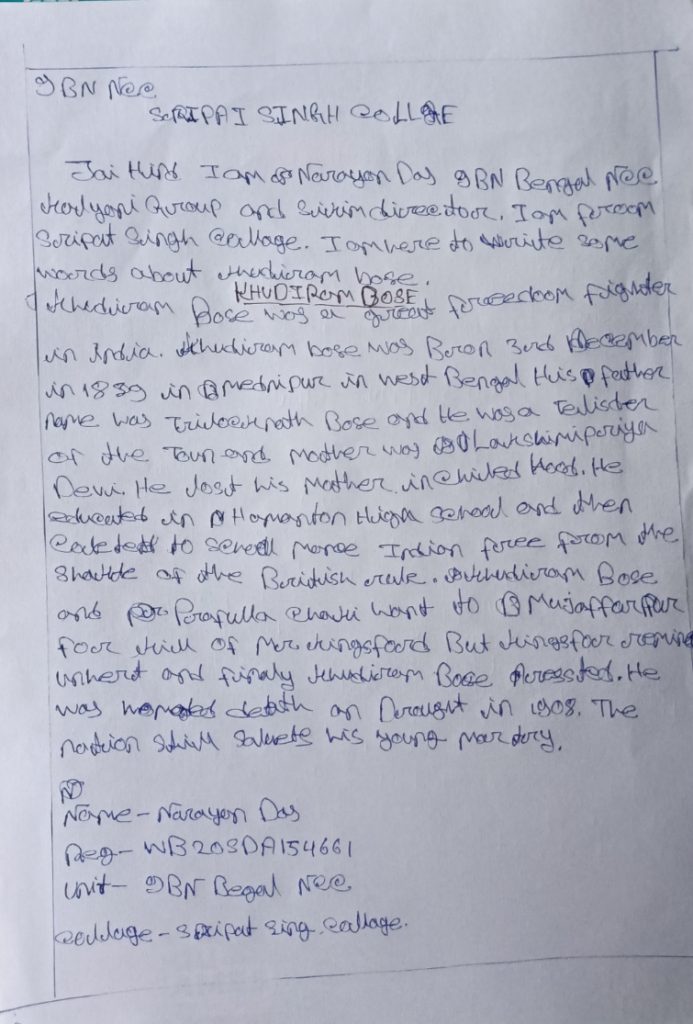 9 BN NCC
SCRIPAT SINGH COLLEGE
Jai Hind I am Narayan Das 9BN Bengal NCC
Kalyani Group and Sikkim directoor. I am froom
Scripat Singh Callage. I am here to write some
woords about khudiram bose.
KHUDIRam BOSE
Khudiram Bose was a great freedoom fighter
in India. Khudiram bose was Boron 3rd December
in 1839 in Mednipur in west Bengal His father
name was Triloceknath Bose and He was a
of the Town and Moother was Lakshimipriya
Devi. He lost his Mother in Hood. He
educated in Hamanton High School and then
to Indian free foroom the
of the rule. Khudiram Bose
and Prafulla Chaki want to Mujaffarpur
foor kill of Mr. kingsfoord But kingsfoor
unhert and finaly khudiram Bose Arressted. He
was death on in 1908. The
nation still his young
Name - Narayan Das
Reg - WB20SDA154661
Unit - 9BN Begal NCC
- Sripat Sing Callage.